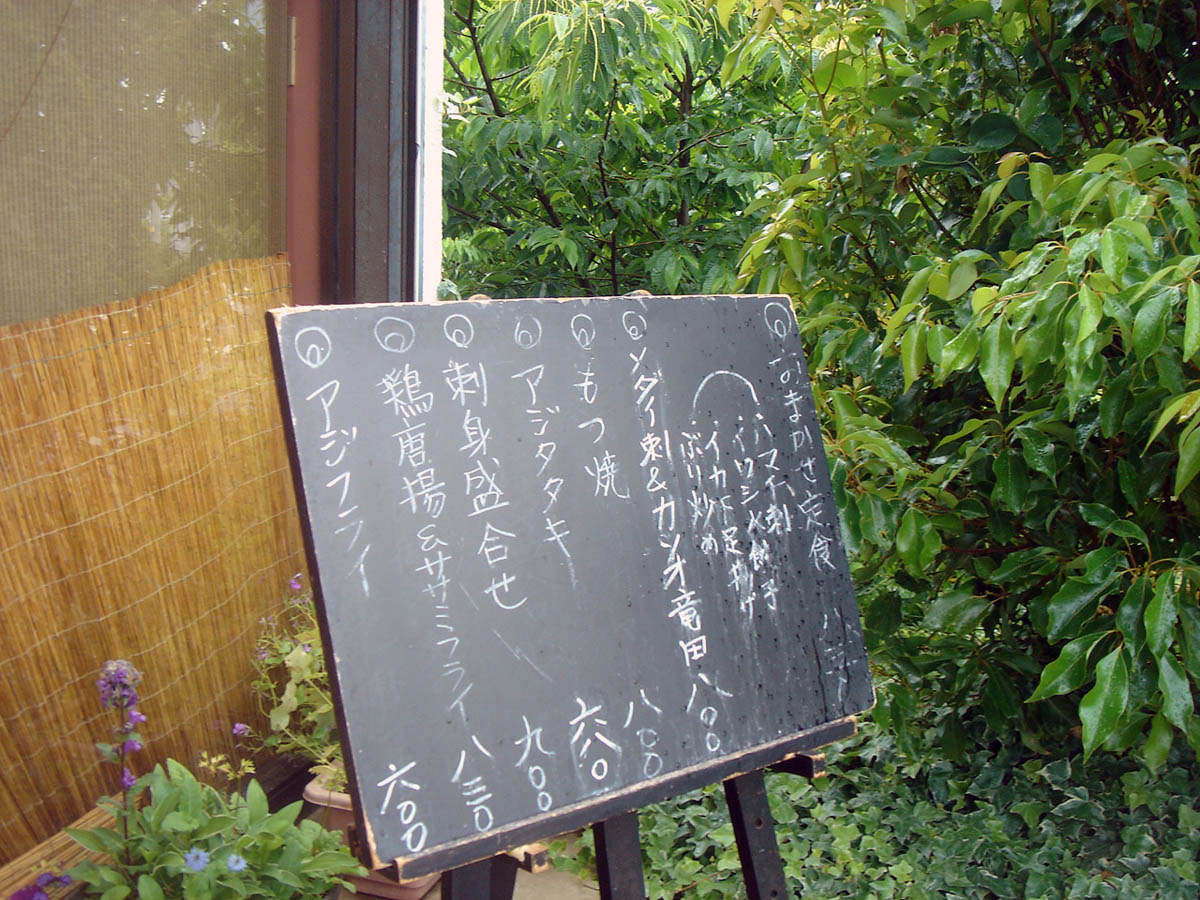 ◎おまかせ定食
ハマチ刺
イワシ水餃子
イカ下足揚げ
ぶり炒め
◎ダイ刺&カツオ竜田 八〇〇
◎もつ焼 八〇〇
◎アジタタキ 六八〇
◎刺身盛合せ 九〇〇
◎鶏唐揚&ササミフライ 八三〇
◎アジフライ 六〇〇